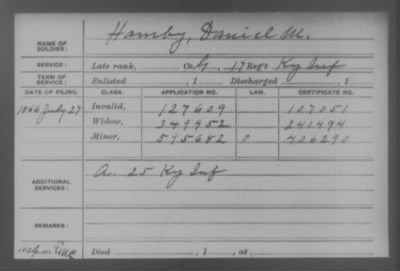 NAME OF SOLDIER: Hamby, Daniel M.
SERVICE: Late rank, Co. G, 17 Reg't Ky Inf
TERM OF SERVICE: Enlisted , 1 Discharged , 1
DATE OF FILING. CLASS. APPLICATION NO. LAW. CERTIFICATE NO.
1866 July 27 Invalid, 127609 107051
Widow, 349952 241494
Minor, 595682 0 406290
ADDITIONAL SERVICES: A. 25 Ky Inf
REMARKS:
Died , 1 , at